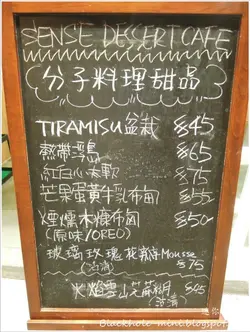 SENSE DESSERT CAFE
分子料理甜品
TIRAMISU盆栽 $45
熱帶浮島 $65
紅白心太軟 $75
芒果蛋黃牛乳布甸 $55
煙燻木糠布甸 $50
(原味/OREO)
玻璃玫瑰花 Mousse
$75
火焰雪山芝麻糊
Blackhole-mini.blogspot